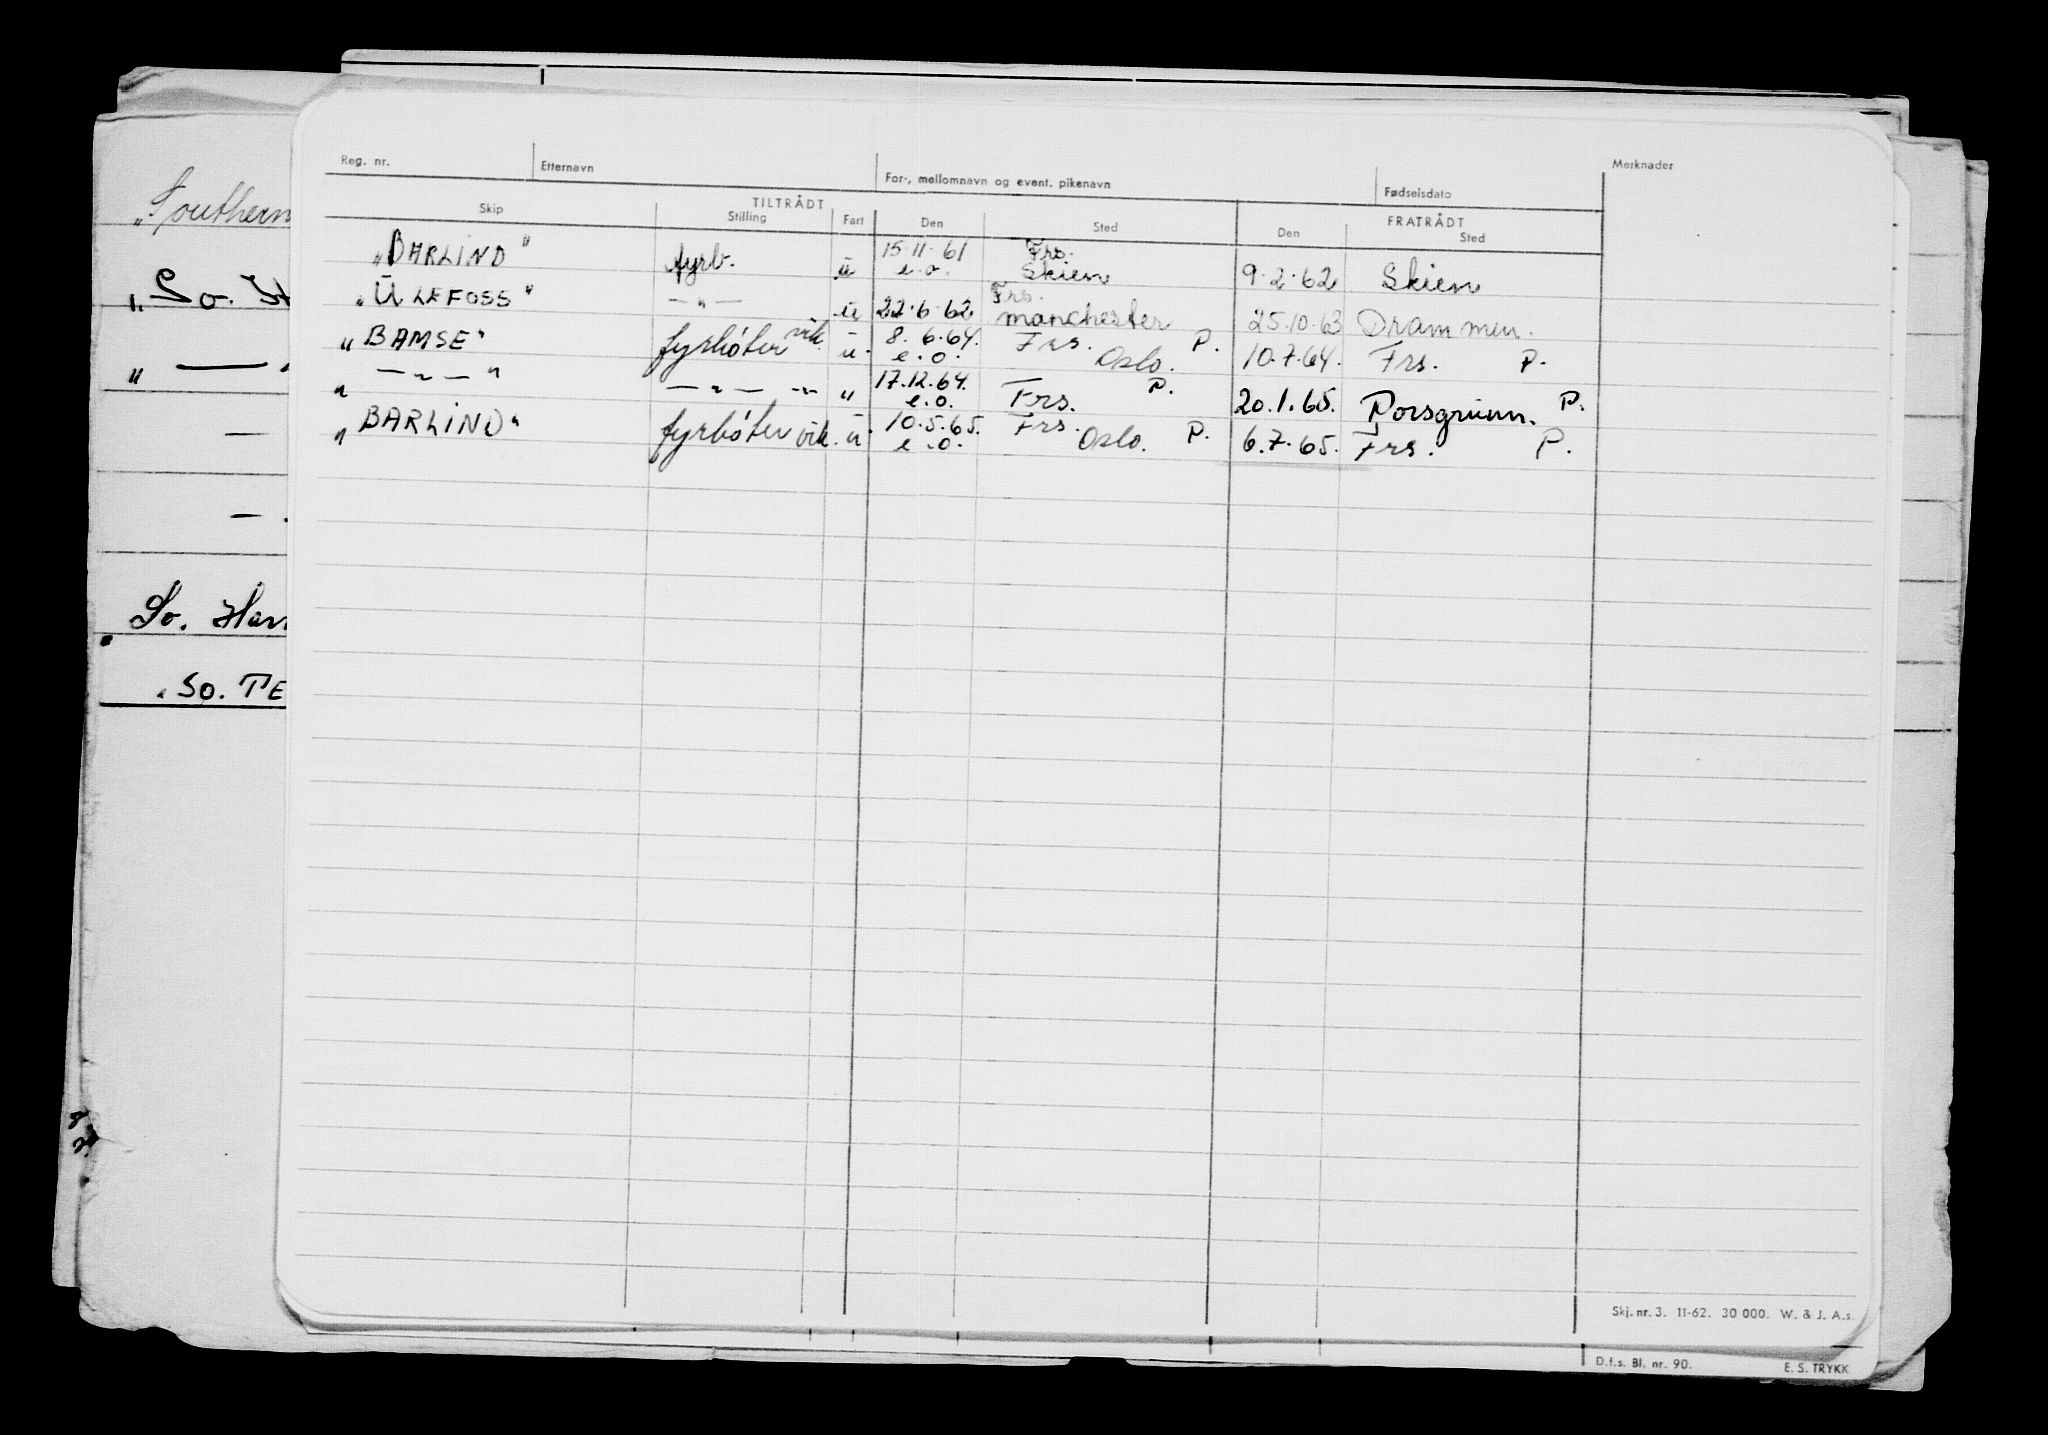 Reg. nr. Etternavn For-, mellomnavn og event. pikenavn Fødselsdato Merknader
TILTRÅDT FRATRÅDT
Skip Stilling Fart Den Sted Den Sted
„BARLIND" fyrb. ü 15.11.61 e.o. Frs. Skien 9.2.62 Skien
„ÜLEFOSS" —„— ü 22.6.62 Frs. Manchester 25.10.63 Drammen.
„BAMSE" fyrbøter vik. ü. 8.6.64. e.o. Frs. Oslo. P. 10.7.64. Frs. P.
„ —„— " —„— -„- „ 17.12.64. e.o. Frs. P. 20.1.65. Porsgrunn. P.
„BARLIND" fyrbøter vik. ü. 10.5.65. e.o. Frs. Oslo. P. 6.7.65. Frs. P.
„Southern
„So.
„ —
—
—
So. Har
„So. TE
Skj. nr. 3. 11-62. 30 000. W. & J. A.s.
D.f.s. Bl. nr. 90. E. S. TRYKK